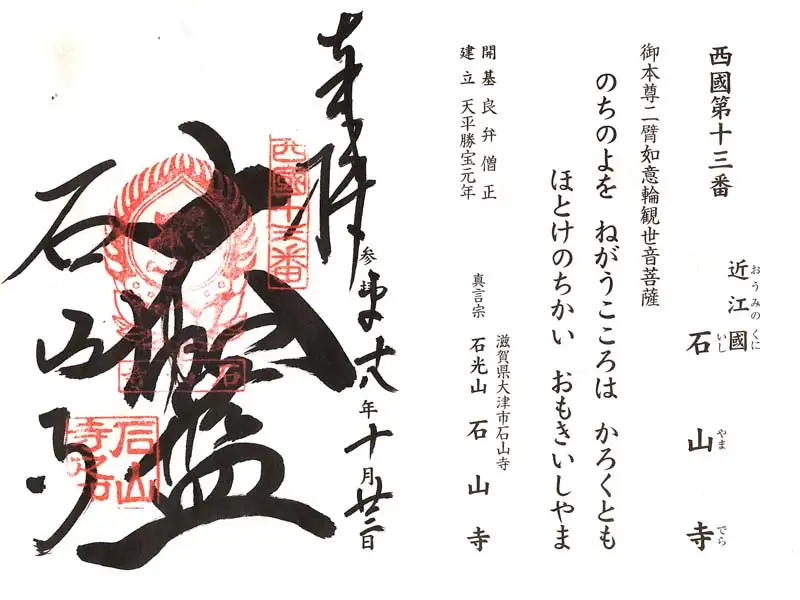 西國第十三番
近江國 石山寺
おうみのくに いしやまでら
御本尊二臂如意輪観世音菩薩
のちのよを ねがうこころは かろくとも
ほとけのちかい おもきいしやま
開基 良弁僧正
建立 天平勝宝元年
滋賀県大津市石山寺
真言宗 石光山 石山寺
奉拝
参拝 平十八年十月廿二日
西國十三番
大伽藍
石山寺
石山寺之印